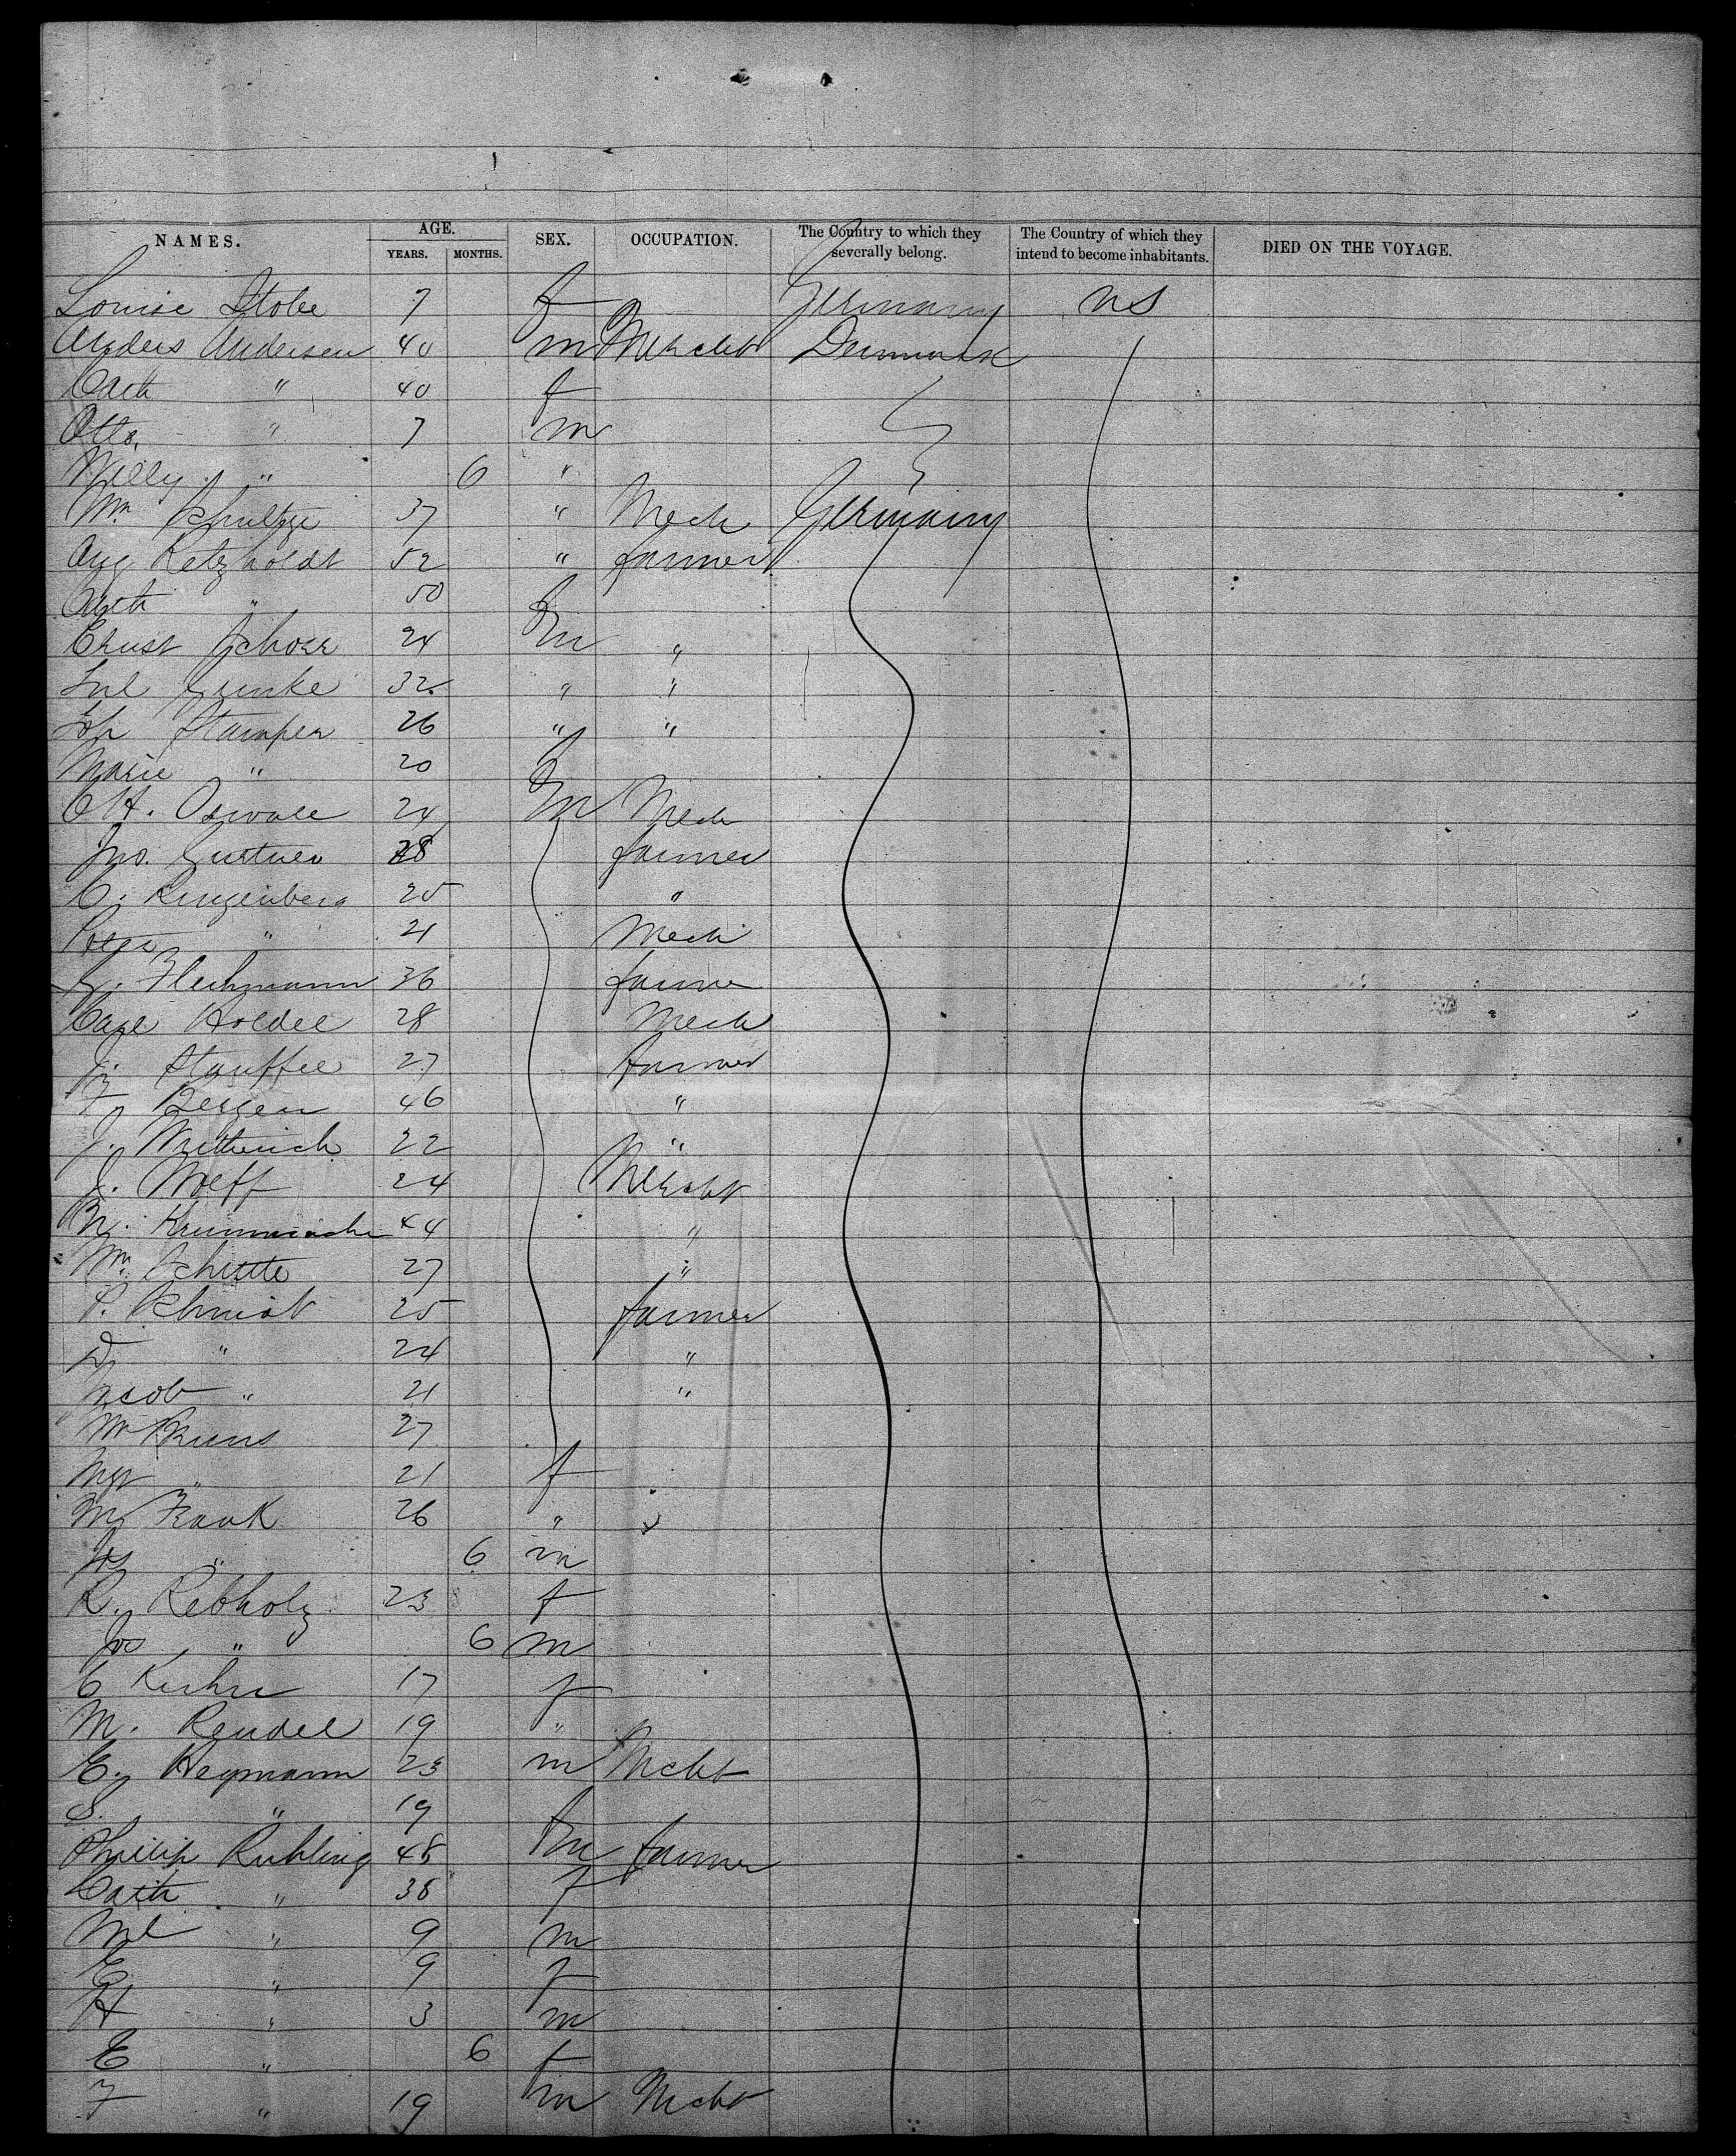 NAMES. AGE. YEARS. MONTHS. SEX. OCCUPATION. The Country to which they severally belong. The Country of which they intend to become inhabitants. DIED ON THE VOYAGE.
Louise Stobe 7 f Germany US
Anders Andersen 40 m Mercht Denmark
Cath " 40 f
Otto " 7 m
Willy " 6 "
Wm Schultze 37 " Mech Germany
Aug Retzholdt 52 " farmer
Cath " 50 f
Ernst Schorr 24 m "
32 " "
Joh Stamper 26 " "
Marie " 20 f
C H. Oswald 24 m Mech
Jno. Gurtner 28 farmer
C. Ringenberg 25 "
Peter " 21 Mech
G. Flechmann 36 farmer
Carl Holdee 28 Mech
J. Stauffer 27 farmer
F Bergen 46 "
J. 22 "
J. Wolff 24 Mercht
44 "
Wm Schutte 27 "
P. Schmidt 25 farmer
D " 24 "
Jacob " 21 "
Wm Bruns 27
Mgt " 21 f
M. Frank 26 "
" 6 m
R. Rebholz 23 f
Jos " 6 m
C 17 f
M. Rendel 19 "
E. Heymann 23 m Mcht
S. " 19 f
Philip Ruhling 48 m farmer
Cath " 38 f
Ml " 9 m
E " 9 f
H " 3 m
E " 6 f
F " 19 m Mcht